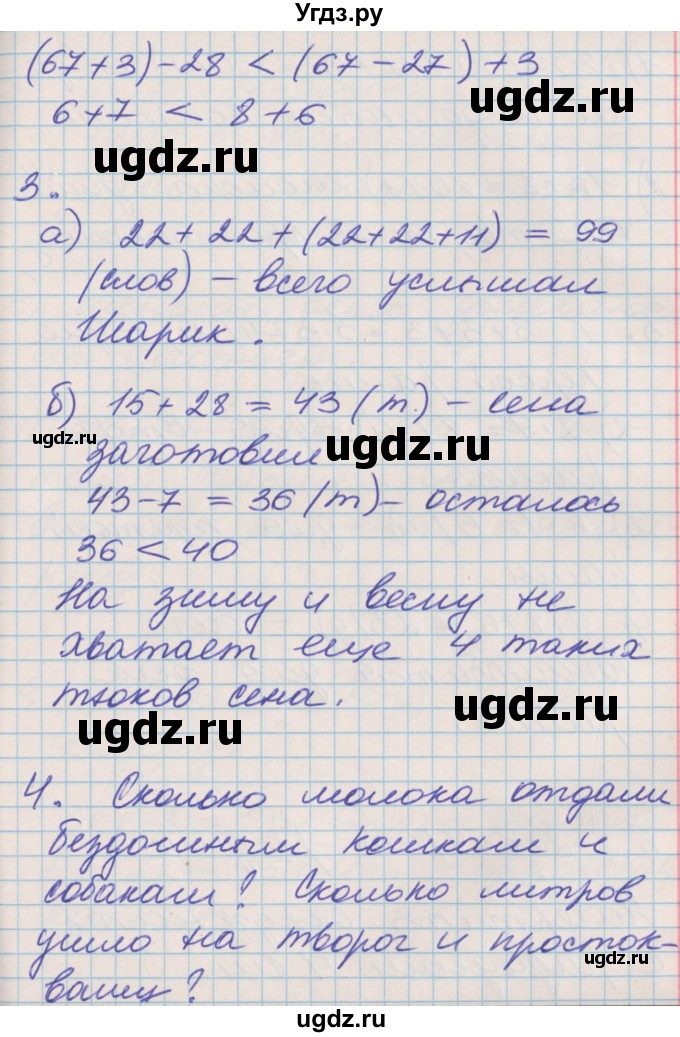 Угдз.ру
(67+3)-28 < (67-27)+3
ugdz.ru
6+7 < 8+6
ugdz.ru
3.
а) 22+22+(22+22+11) = 99
(слов) – всего услышал
ugdz.ru
Шарик.
б) 15+28 = 43 (т.) – сена
ugdz.ru
заготовили
ugdz.ru
43-7 = 36 (т) – осталось
36 < 40
ugdz.ru
На зиму и весну не
хватает еще 4 таких
тюков сена.
ugdz.ru
ugdz.ru
4. Сколько молока отдали
бездомным кошкам и
собакам? Сколько литров
ugdz.ru
ушло на творог и просток-
ugdz.ru
вашу?
ugdz.ru